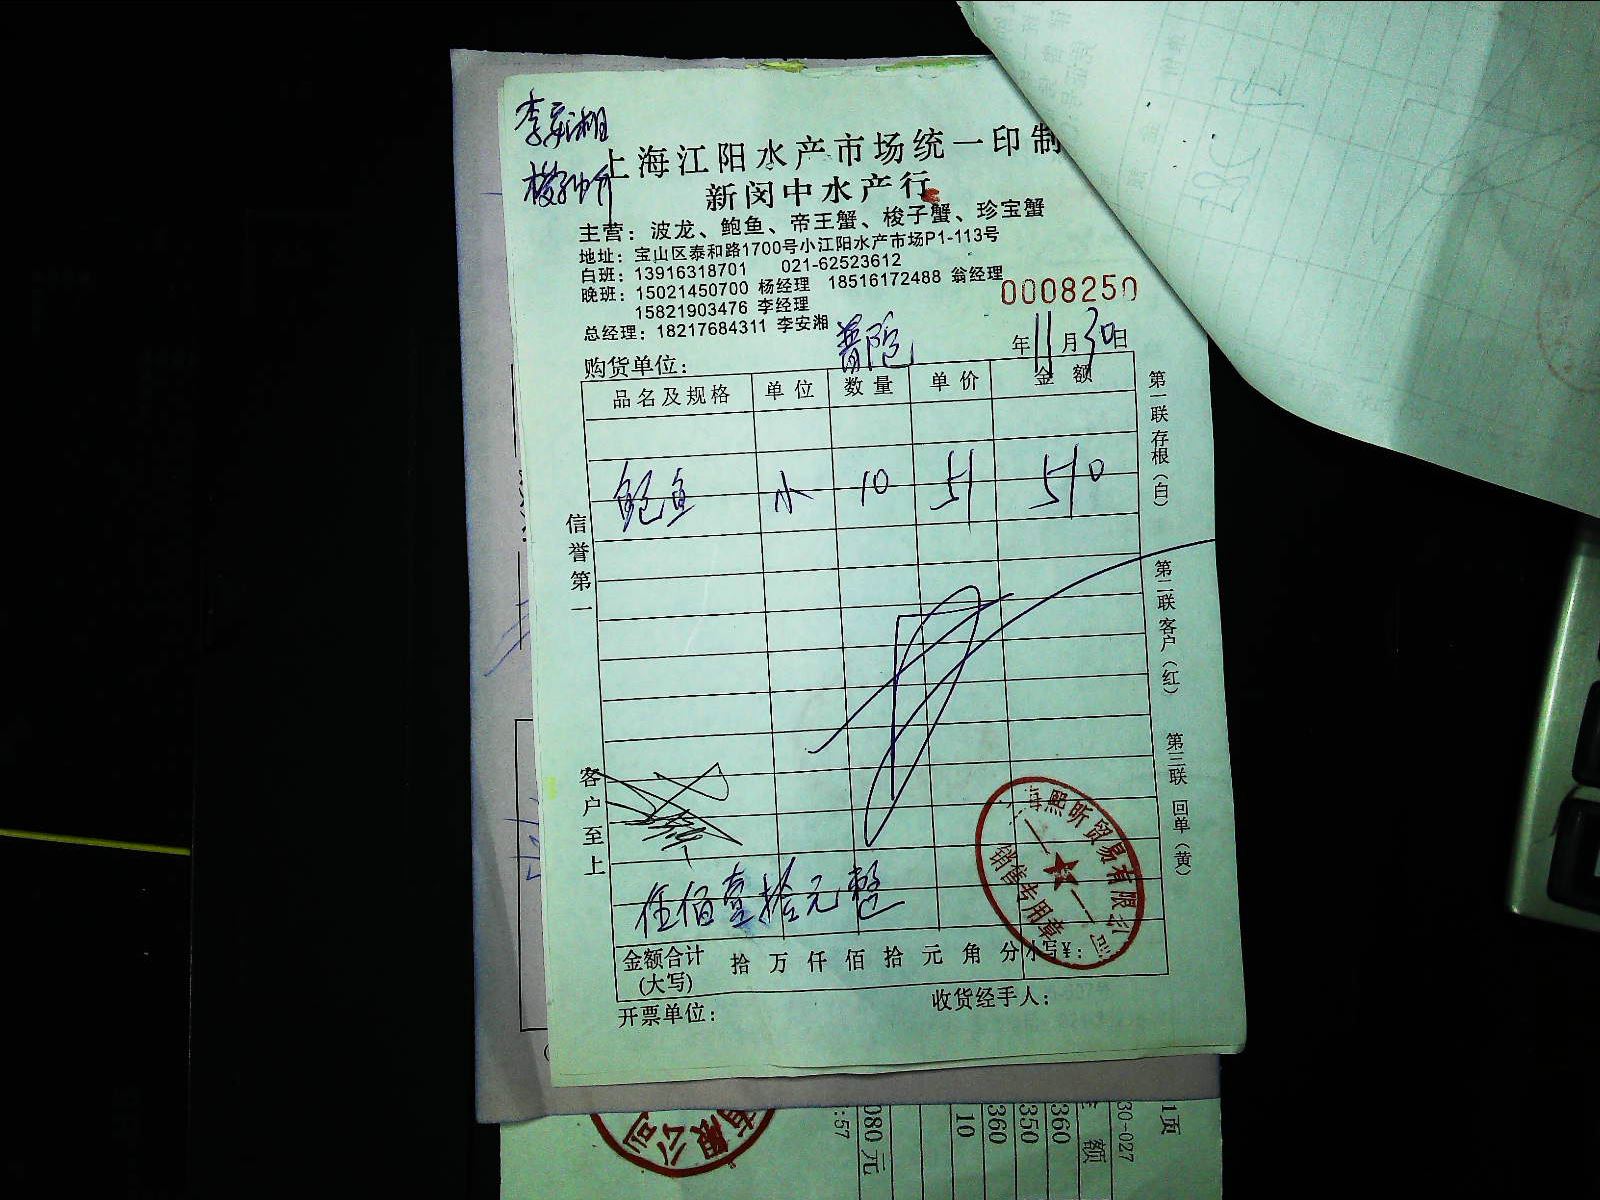 李安湘
上海江阳水产市场统一印制
新闵中水产行
主营：波龙、鲍鱼、帝王蟹、梭子蟹、珍宝蟹
地址：宝山区泰和路1700号小江阳水产市场P1-113号
白班：13916318701 021-62523612
晚班：15021450700 杨经理 18516172488 翁经理
15821903476 李经理
总经理：18217684311 李安湘
0008250
购货单位： 普陀 年11月30日
品名及规格 单位 数量 单价 金额
鲍鱼 小 10 51 510
信誉第一
客户至上
第一联 存根（白）
第二联 客户（红）
第三联 回单（黄）
伍佰壹拾元整
海熙昕贸易有限公司
销售专用章
金额合计 拾 万 仟 佰 拾 元 角 分 小写¥：
(大写)
开票单位： 收货经手人：
有限公司
1页
30-027
额
360
350
360
10
080 元
:57